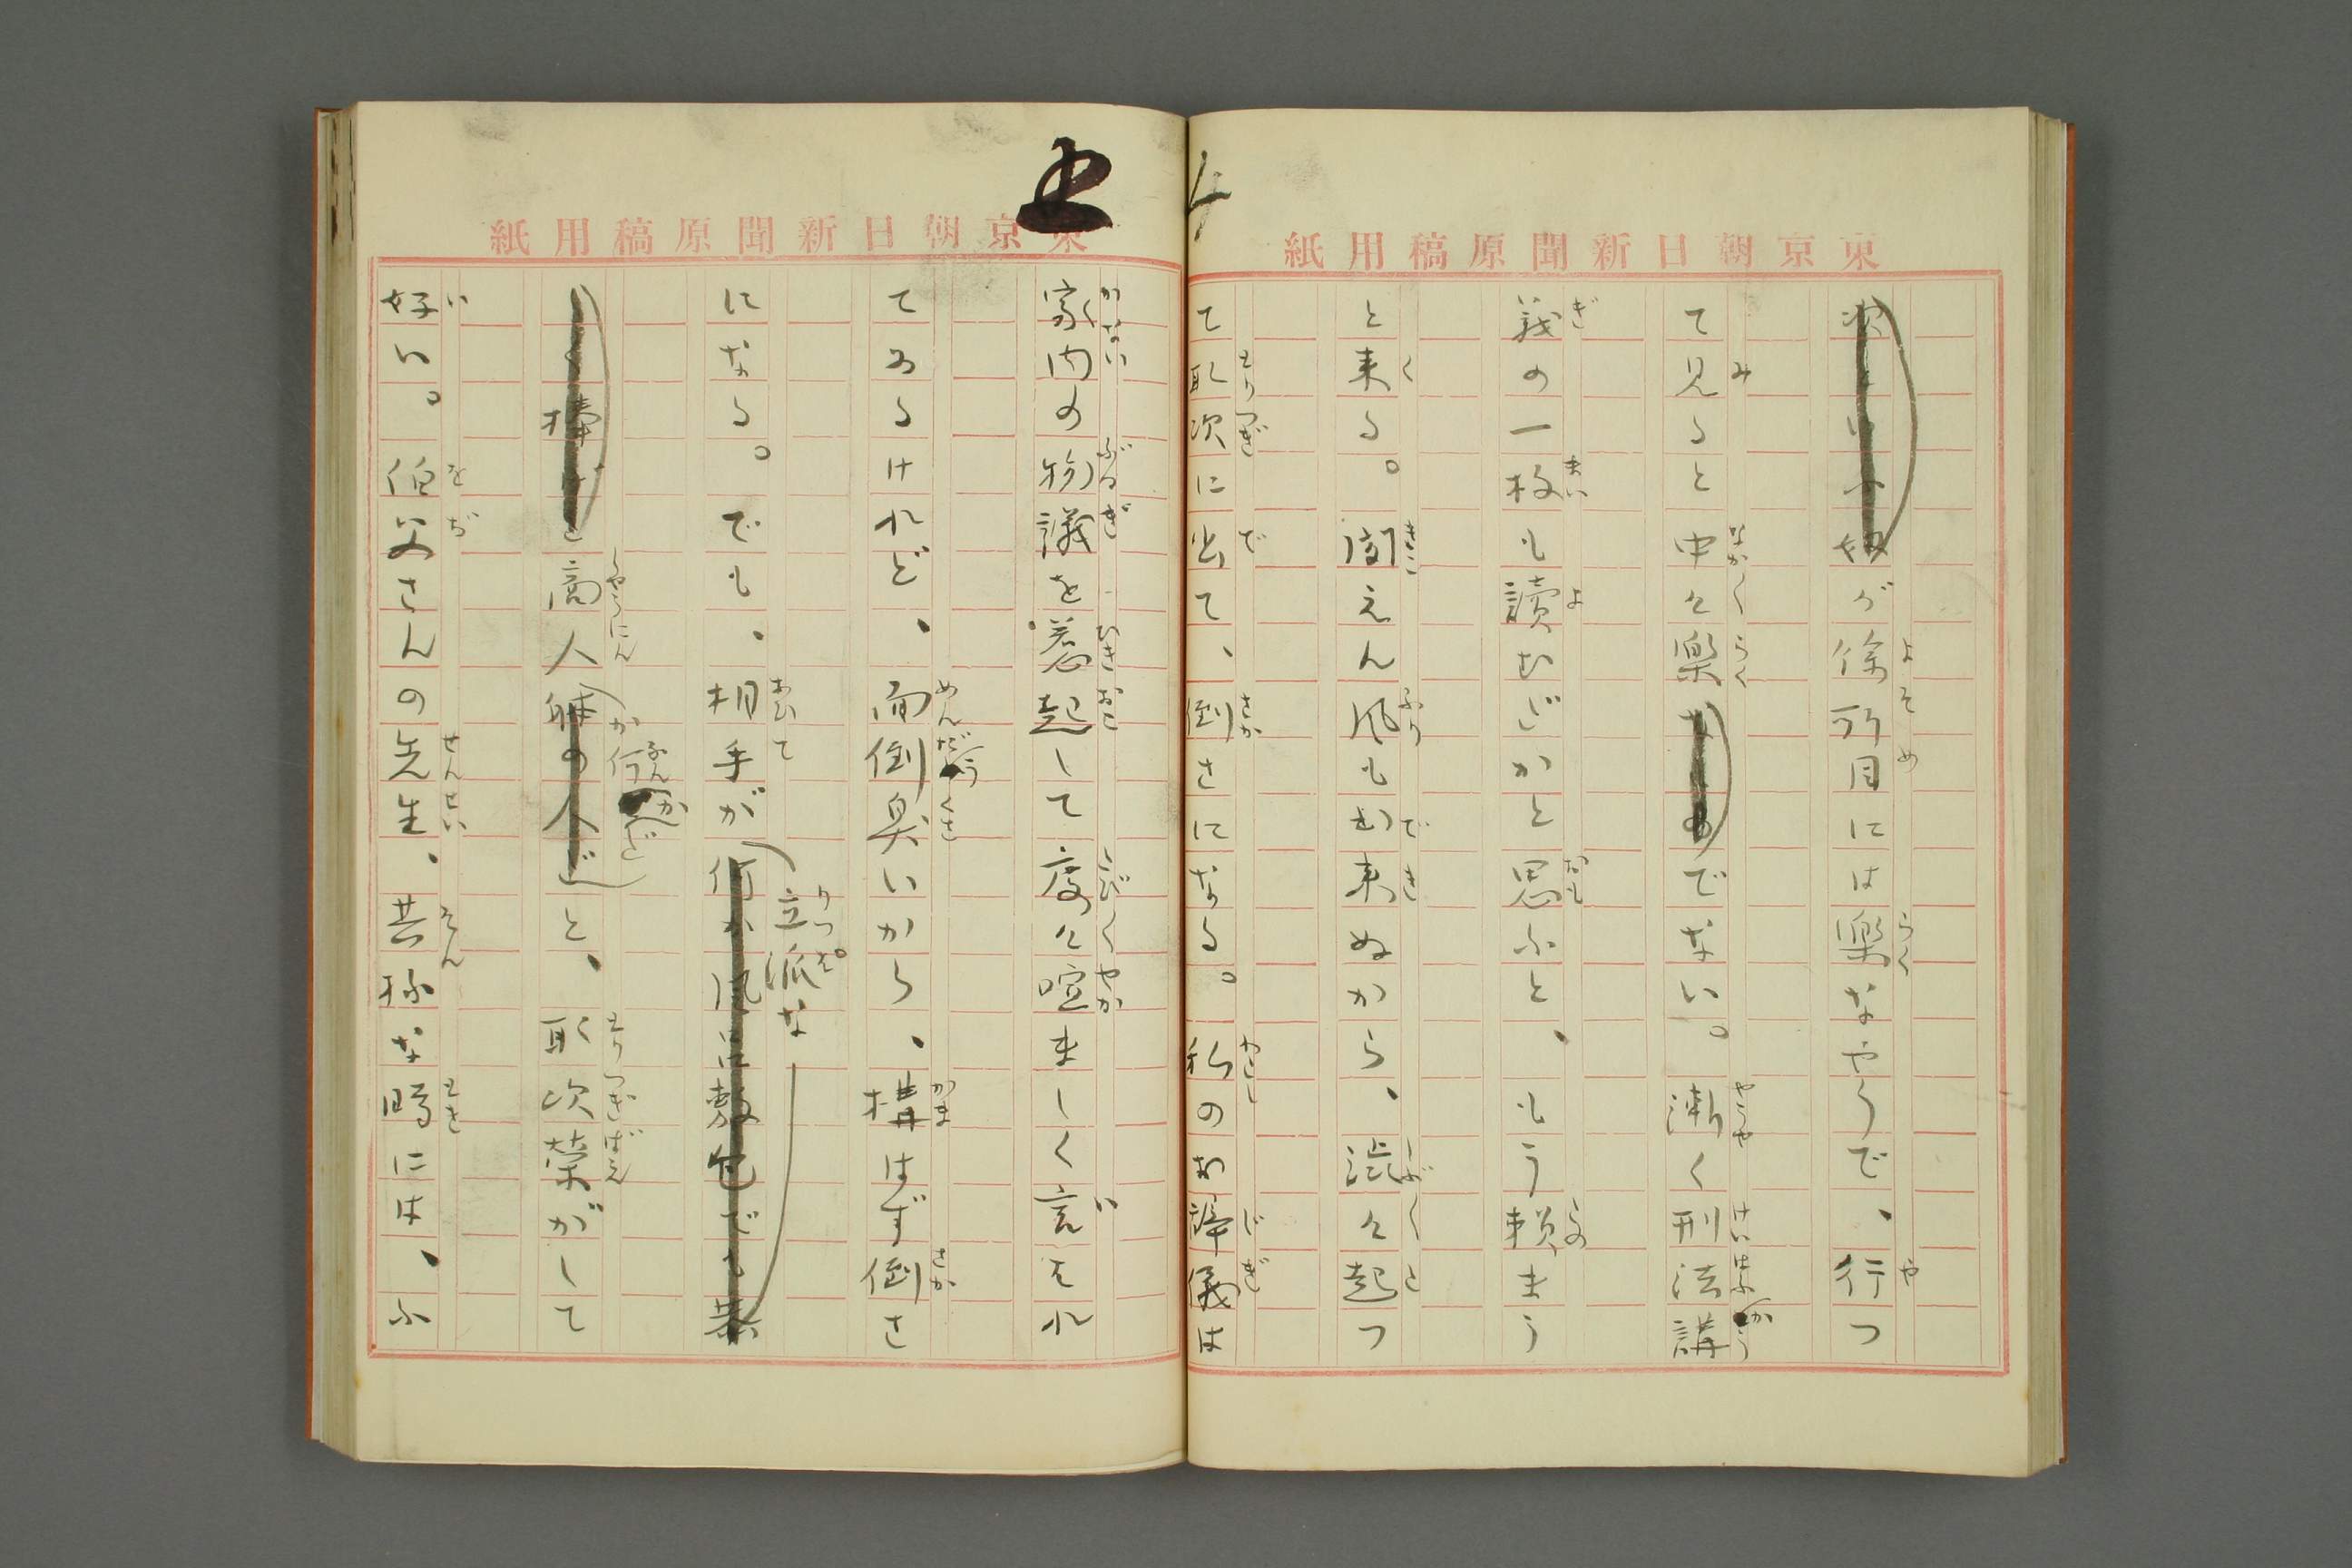 東京朝日新聞原稿用紙
が余所目には樂なやうで、行つ
て見ると中々樂でない。漸く刑法講
義の一枚も讀むだかと思ふと、もう頼まう
と来る。聞えん風も出来ぬから、澁々起つ
て取次に出て、倒さになる。私のお辞儀は
東京朝日新聞原稿用紙
家内の物議を惹起して度々喧ましく言はれ
てゐるけれど、面倒臭いから、構はず倒さ
になる。でも、相手が立派な
商人か何かだと、取次榮がして
好い。伯父さんの先生、其様な時には、ふ